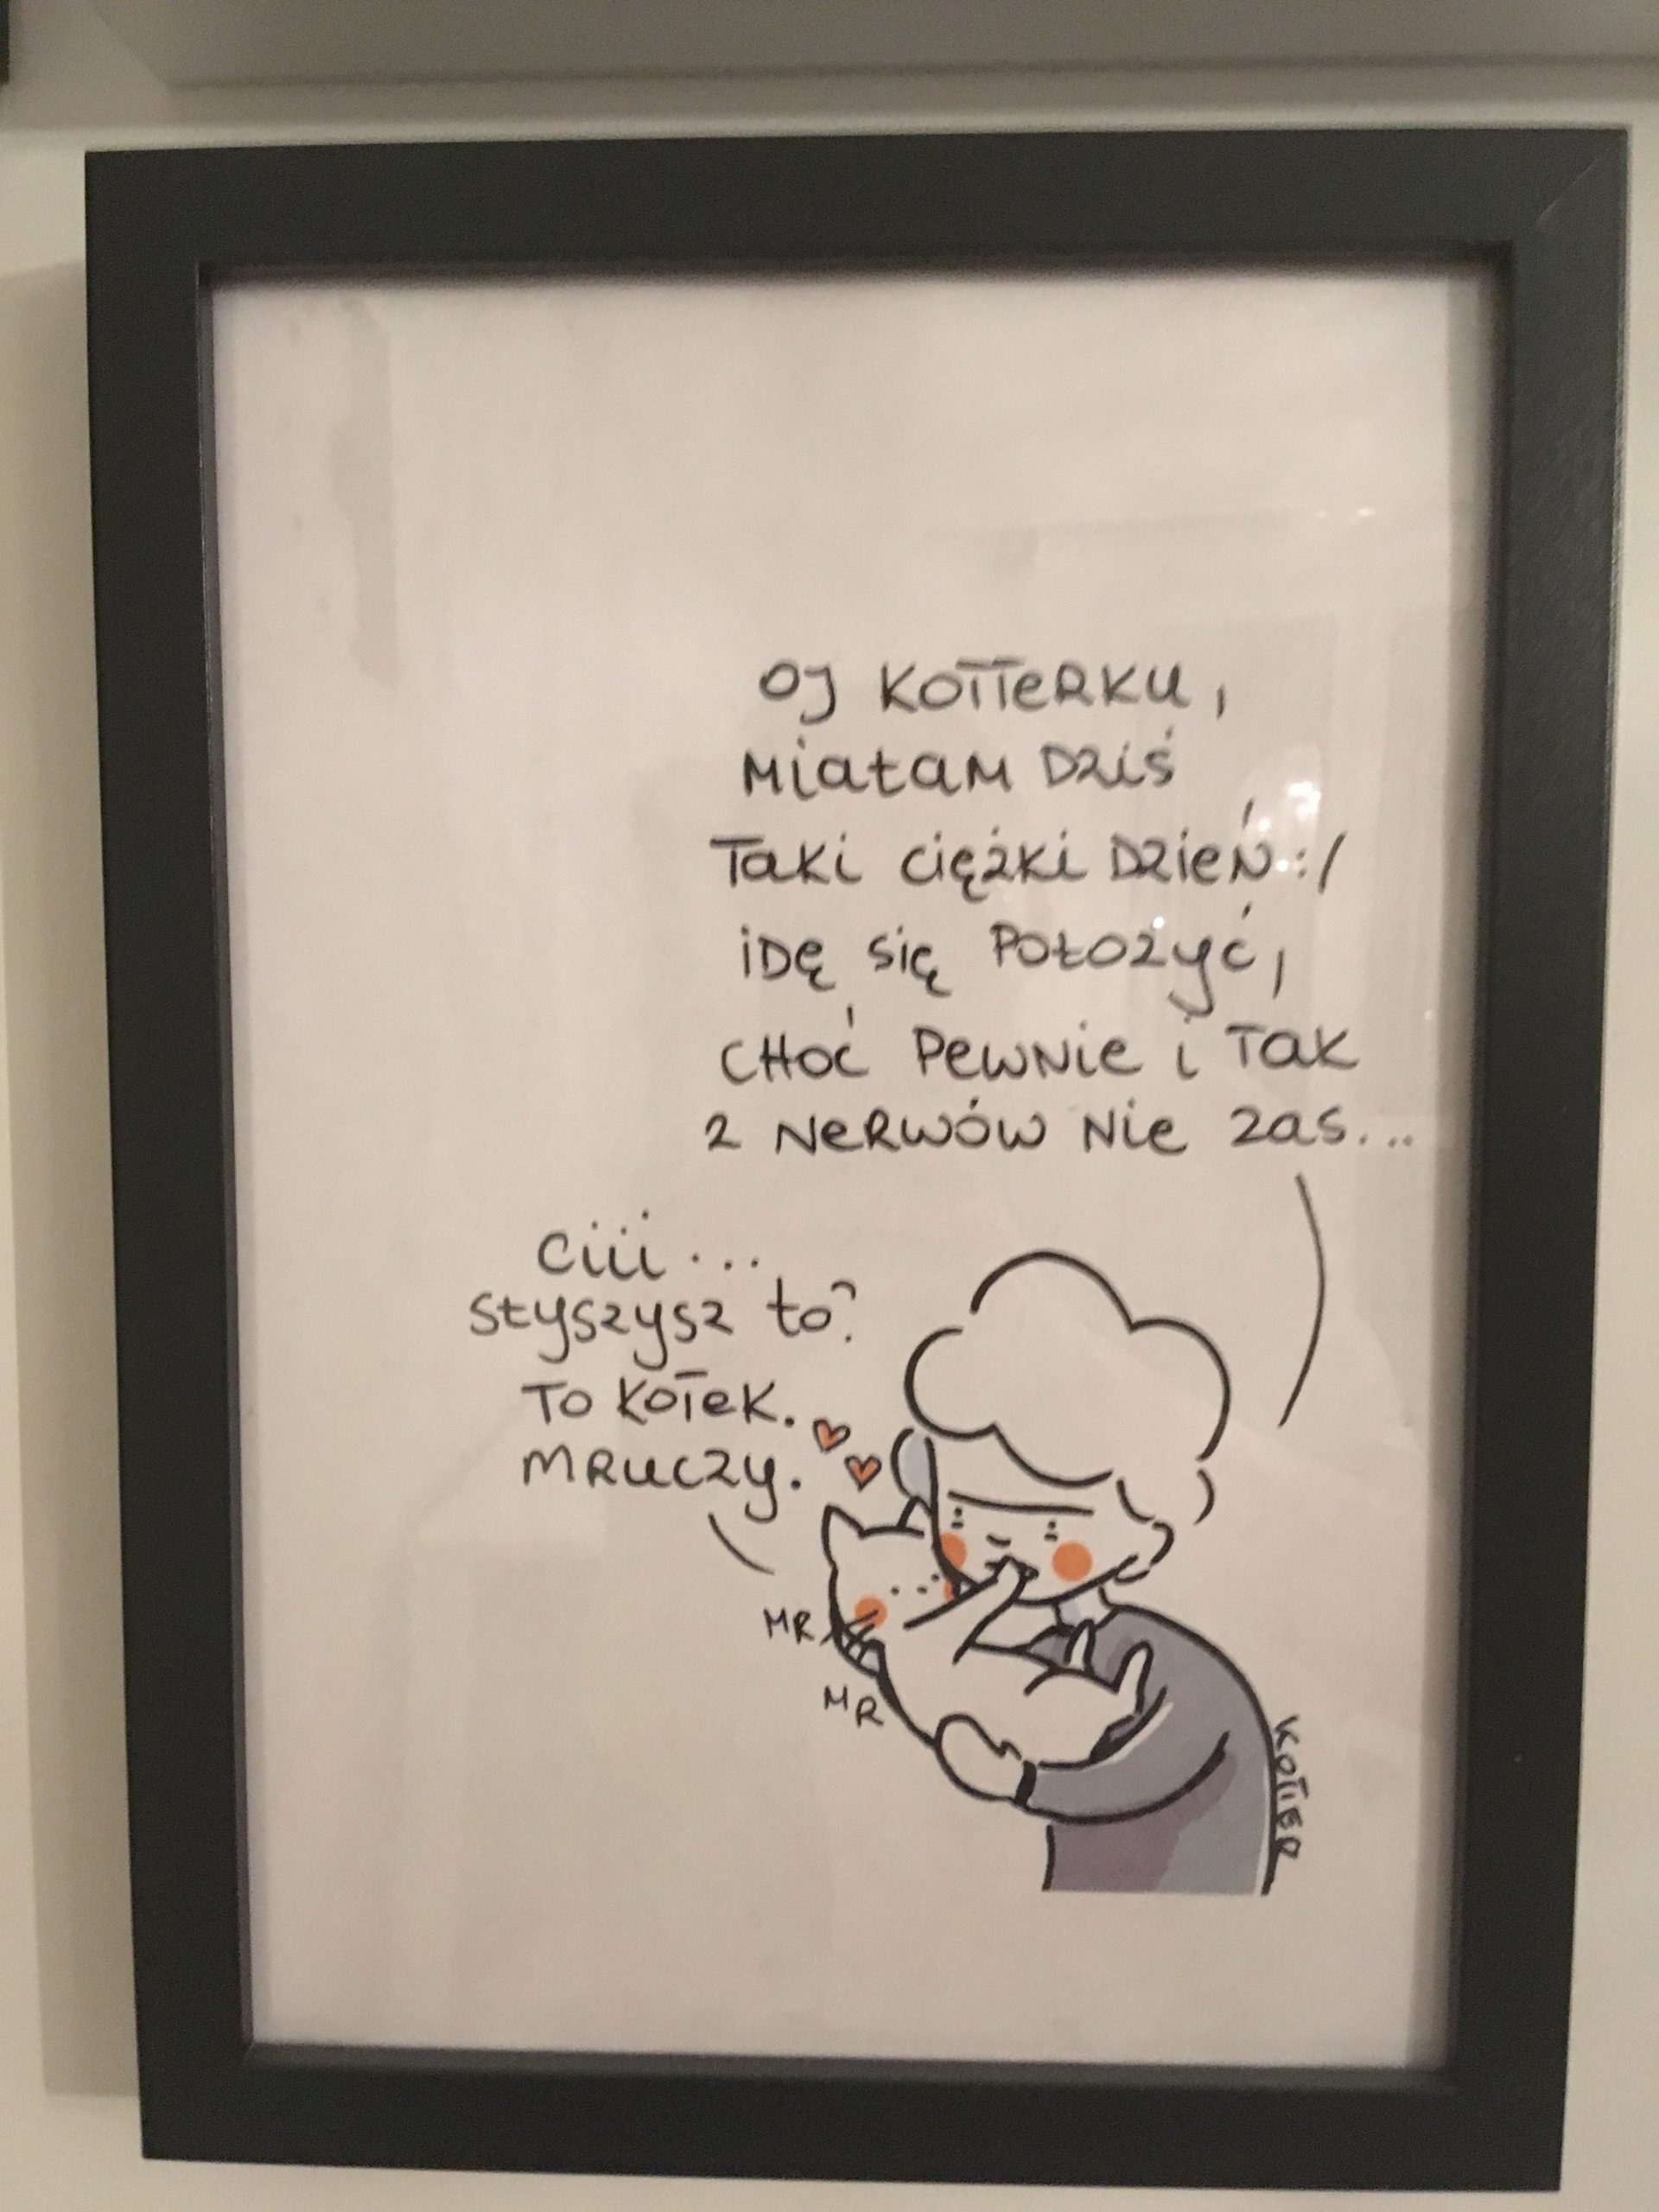 OJ KOTTERKU,
MIAŁAM DZIŚ
TAKI CIĘŻKI DZIEŃ :/
IDĘ SIĘ POŁOŻYĆ,
CHOĆ PEWNIE I TAK
Z NERWÓW NIE ZAS...
CIII...
SŁYSZYSZ TO?
TO KOTEK.
MRUCZY.
MR
MR
KOTTER